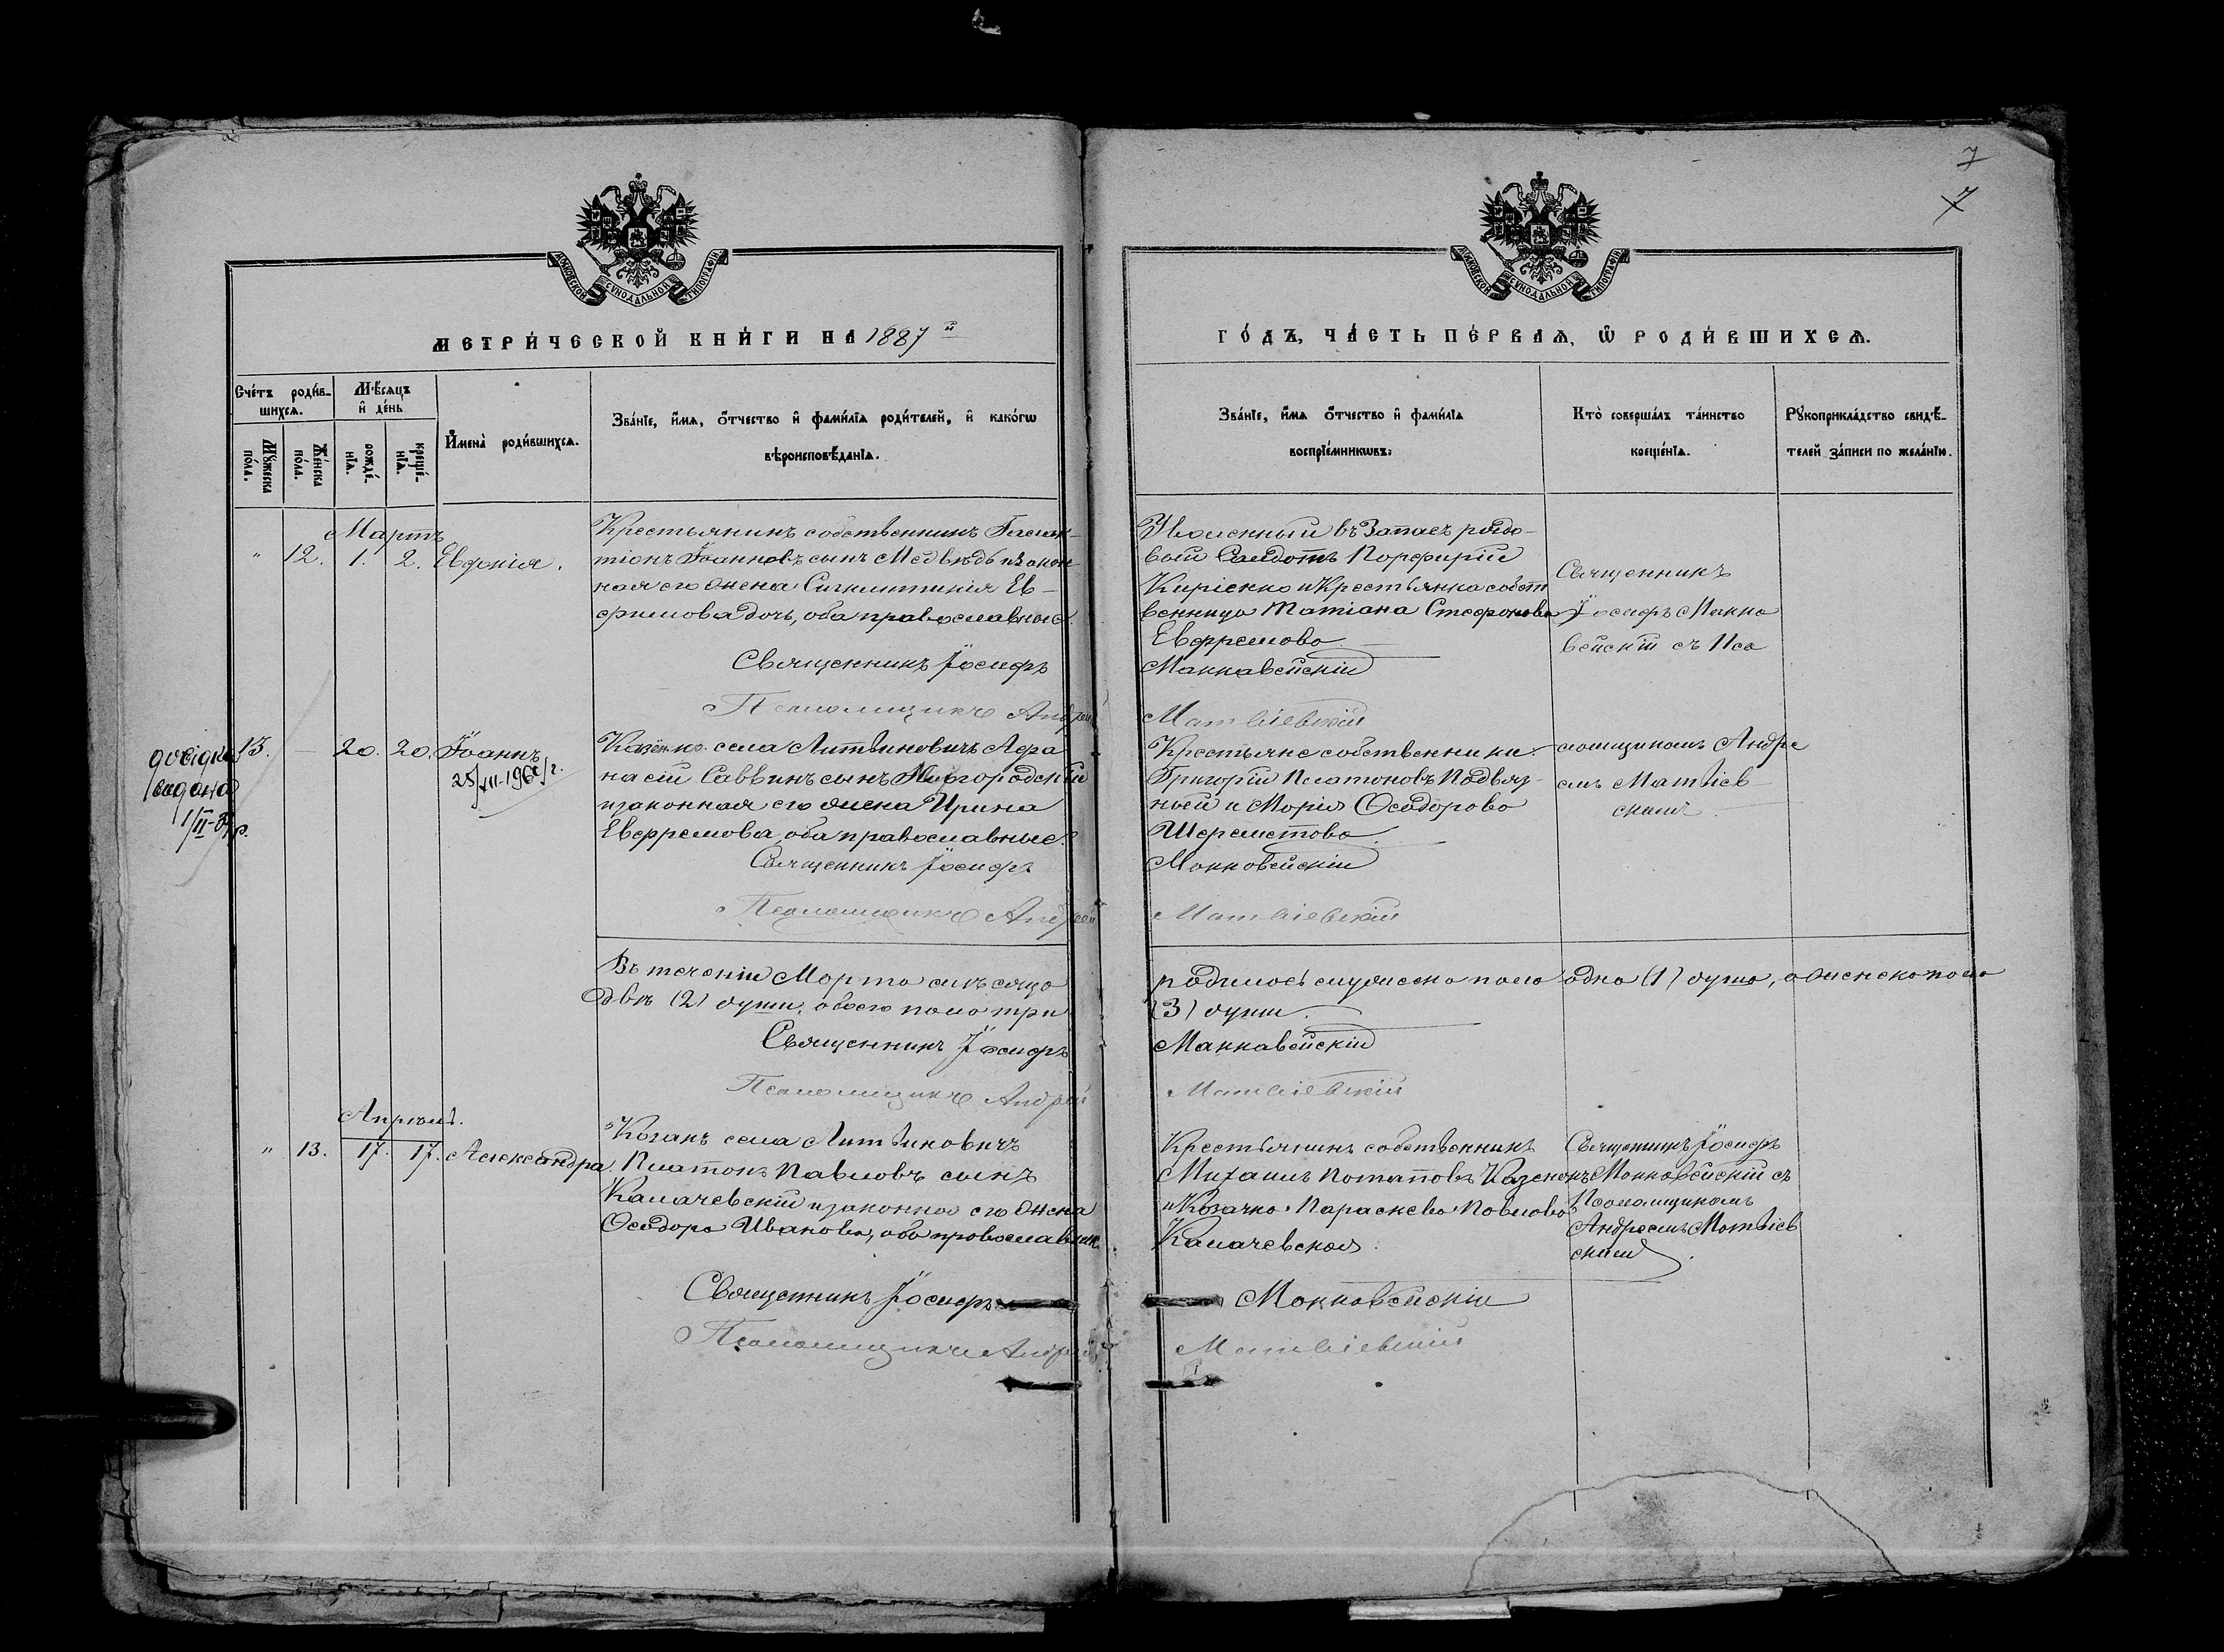 7
7
МОСКОВСКОЙ СѴНОДАЛЬНОЙ ТИПОГРАФІИ
МОСКОВСКОЙ СѴНОДАЛЬНОЙ ТИПОГРАФІИ
МЕТРИ́ЧЕСКОЙ КНИ́ГИ НА 1887 й
ГО́ДЪ, ЧА́СТЬ ПЕ́РВАѦ, Ѡ҆ РОДИ́ВШИХСѦ.
Сче́тъ роди́в-
шихсѧ.
Мꙋ́жеска по́ла.
Же́нска по́ла.
Мѣ́сѧцъ
и҆ де́нь
рожде́-нїѧ.
креще́-нїѧ.
И҆мена̀ роди́вшихсѧ.
Зва́нїе, и҆́мѧ, ѻ҆́тчество и҆ фами́лїѧ роди́телей, и҆ како́гѡ
вѣроисповѣ́данїѧ.
Зва́нїе, и҆́мѧ ѻ҆́тчество и҆ фами́лїѧ
воспрїе́мникѡвъ.
Кто̀ соверша́лъ та́инство
креще́нїѧ.
Рꙋкоприкла́дство свидѣ́-
телей за́писи по жела́нїю.
Мартъ
" 12. 1. 2. Евдокія.
Крестьянинъ собственникъ
тіонъ Іоанновъ сынъ Медвѣдь и закон-
ная его жена Синклитикія Ев-
фимова дочь, оба православные.
Священникъ Іосифъ
Псаломщикъ Андрей
Уволенный въ Запасъ рядо-
вой Солдатъ Порфирій
Киріенко и Крестьянка собст
венница Татіана Стефанова
Евфремова
Маккавейскій
Матвіевскій
Священникъ
Іосифъ Макка
вейскій съ Пса
13. — 20. 20. Іоаннъ
25/XII-196 г.
довідка
видана
1/II-
Козакъ села Литвиновичъ Афа
насій Саввинъ сынъ Миргородскій
и законная его жена Ирина
Евфремова, оба православные.
Священникъ Іосифъ
Псаломщикъ Андрей
Крестьяне собственники
Григорій Платоновъ Подвяз-
ный и Марія Ѳеодорова
Шереметова
Маккавейскій
Матвіевскій
ломщикомъ Андре
емъ Матвіев
скимъ.
Въ теченіи Марта мѣсяца
родилось мужеска пола одна (1) душа, а женска пола
двѣ (2) души, обоего пола три
(3) души.
Священникъ Іосифъ
Маккавейскій
Псаломщикъ Андрей
Матвіевскій
Апрѣль.
" 13. 17. 17. Александра.
Козакъ села Литвиновичъ
Платонъ Павловъ сынъ
Калачевскій и законная его жена
Ѳеодора Иванова, оба православные.
Священникъ Іосифъ
Псаломщикъ Андрей
Крестьянинъ собственникъ
Михаилъ Потаповъ Казенокъ
и Козачка Параскева Павлова
Калачевская.
Маккавейскій
Матвіевскій
Священникъ Іосифъ
Маккавейскій съ
Псаломщикомъ
Андреемъ Матвіев
скимъ.